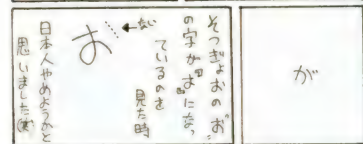 が
そつぎょおの"お"
の字が"お"になっ
ているのを
見た時
ない
お
日本人やめようかと
思いました